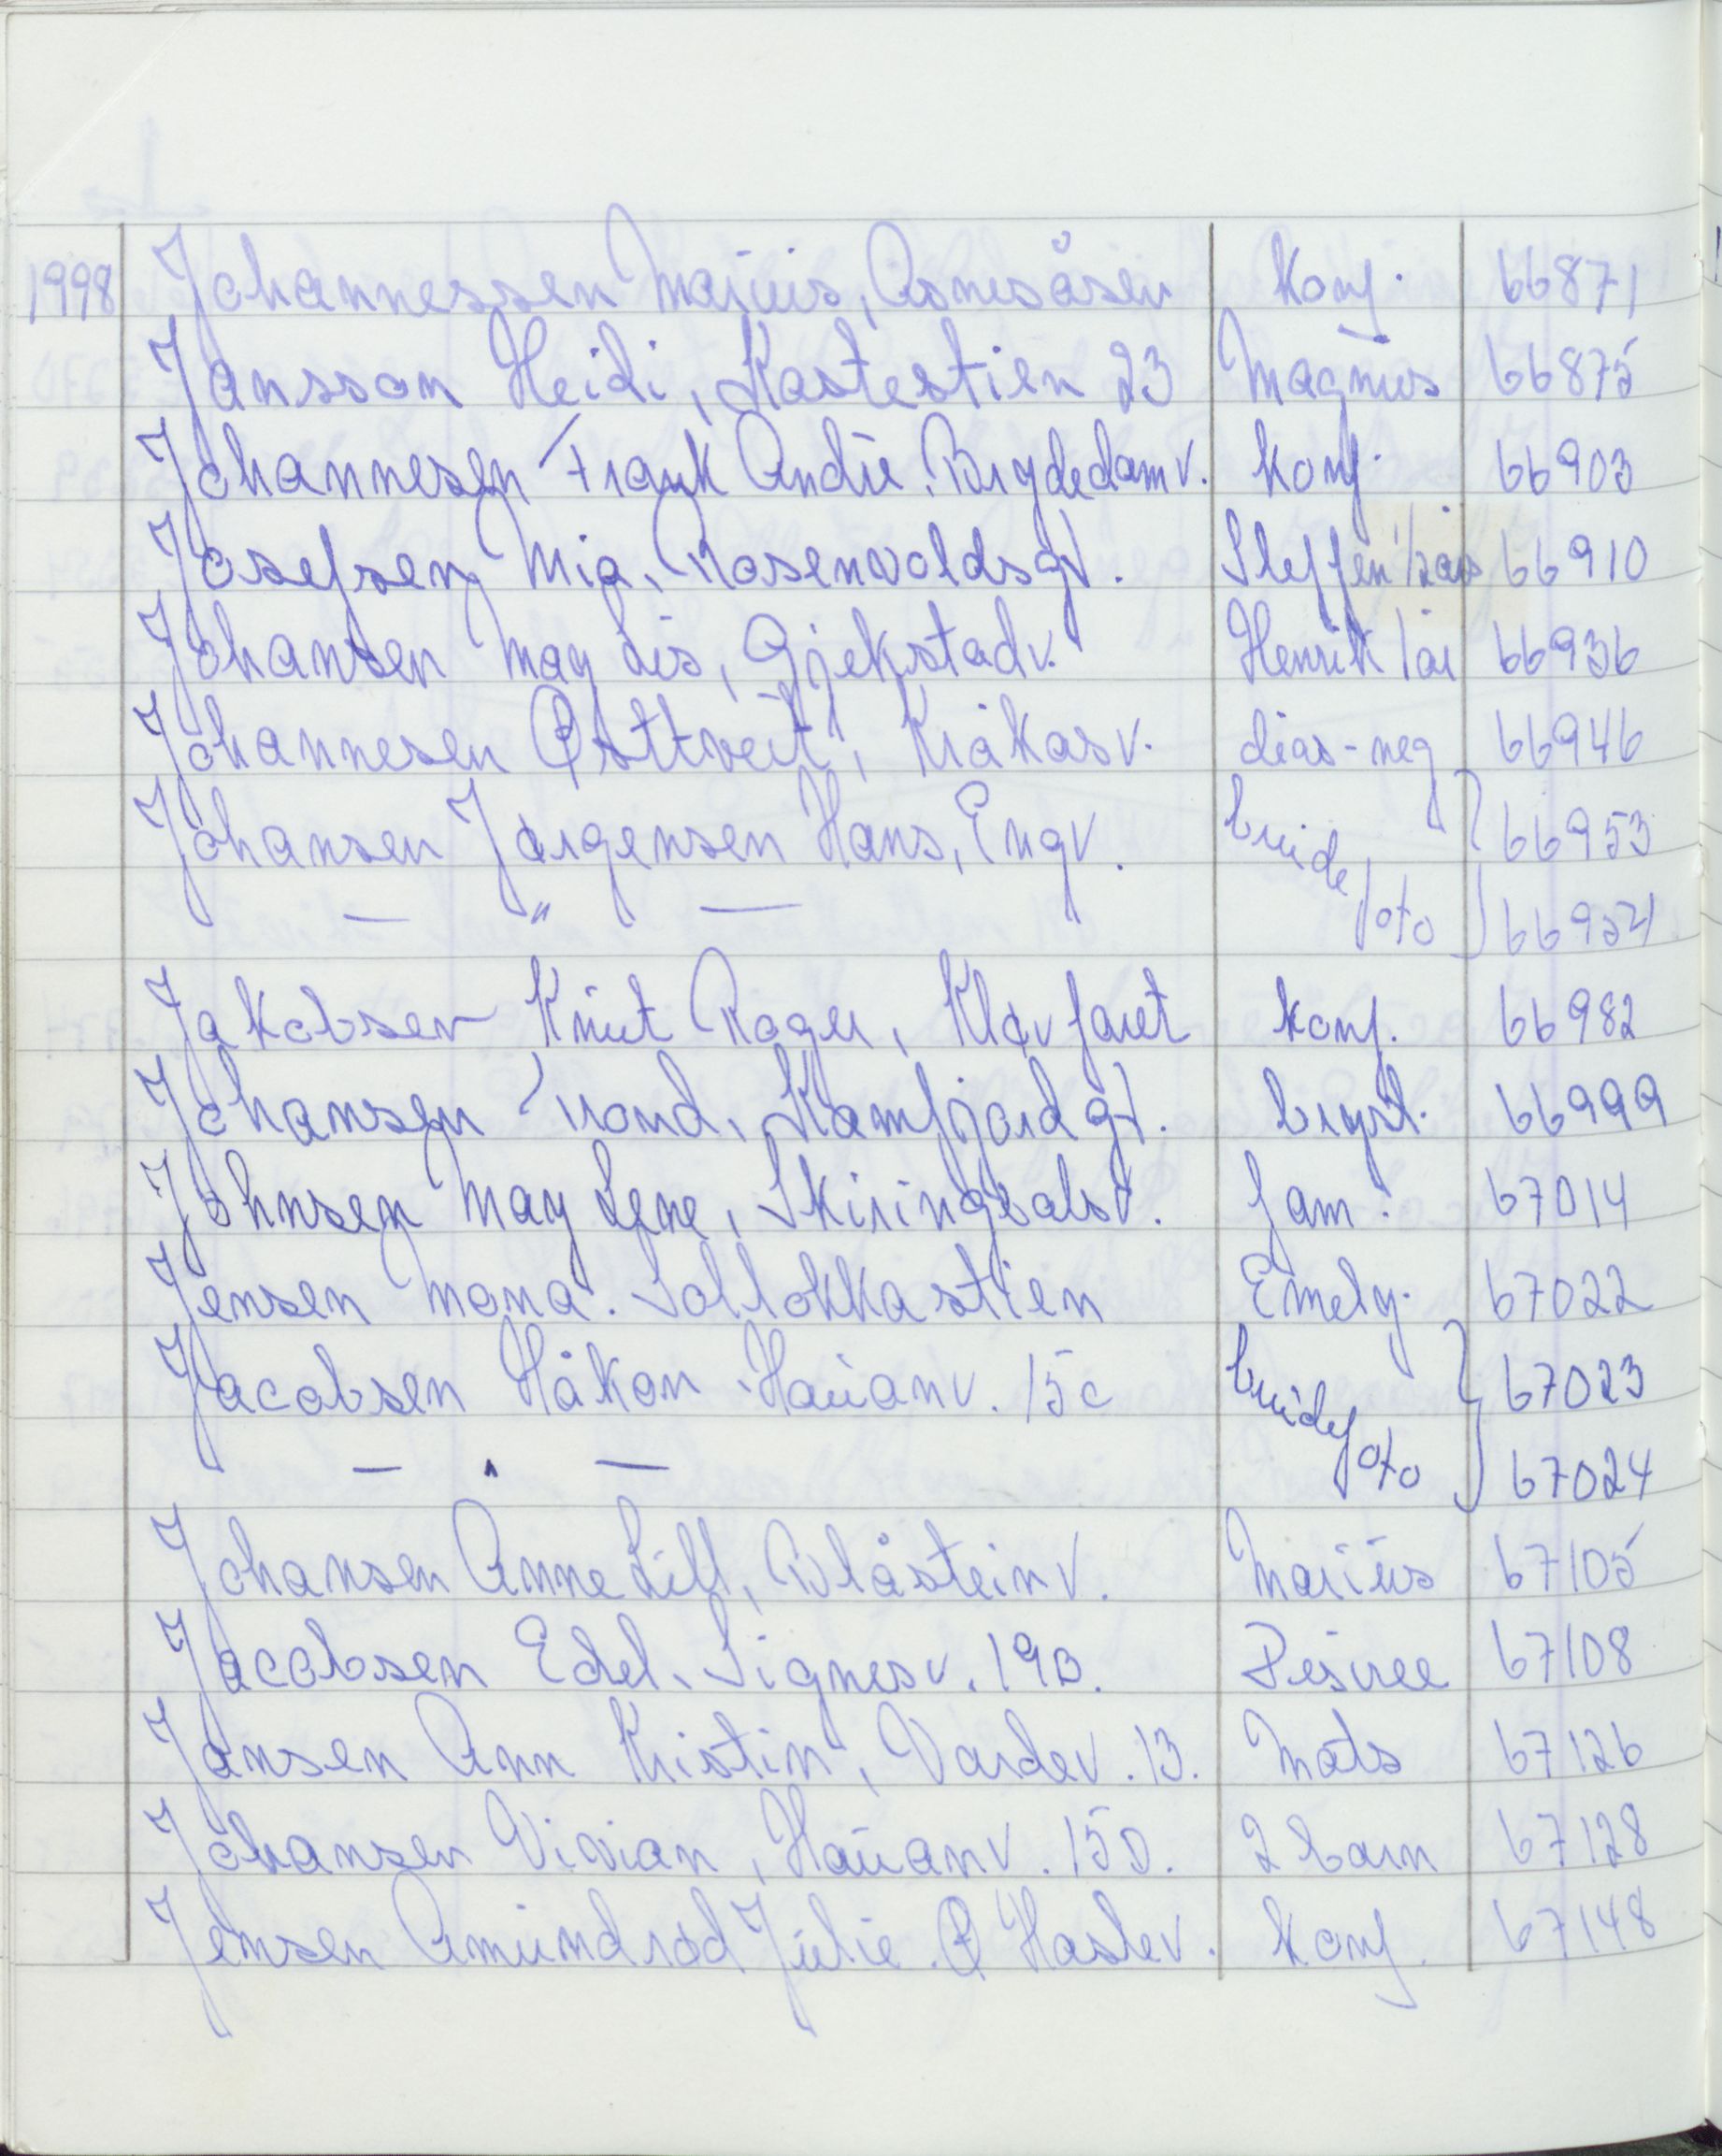 1998 Johannessen Marius, Asnesåsen Konf. 66871
Jansson Heidi, Kastestien 23 Magnus 66875
Johannesen Frank André. Brydedamv. Konf. 66903
Josefsen Mia, Rosenvoldsgt. Steffen 66910
Johansen May Lis, Gjekstadv. Henrik 1 år 66936
Johannesen Østtveit, Kråkåsv. dias-neg 66946
Johansen Jørgensen Hans, Engv. brude 66953
— " — foto 66954
Jakobsen Knut Roger, Kløvfaret konf. 66982
Johansen Trond, Kamfjordgt. bryst. 66999
Johnsen May Lene, Skiringsalsv. fam. 67014
Jensen Mona. Sollökkastien Emely. 67022
Jacobsen Håkon Hauanv. 15c brude 67023
— " — foto 67024
Johansen Anne Lill, Blåsteinv. Marius 67105
Jacobsen Edel, Signesv. 19B. Desiree 67108
Jansen Ann Kristin, Vardev. 13. Mats 67126
Johansen Vivian, Hauanv. 15D. 2 barn 67128
Jensen Amundrød Julie. Ø Haslev. Konf. 67148